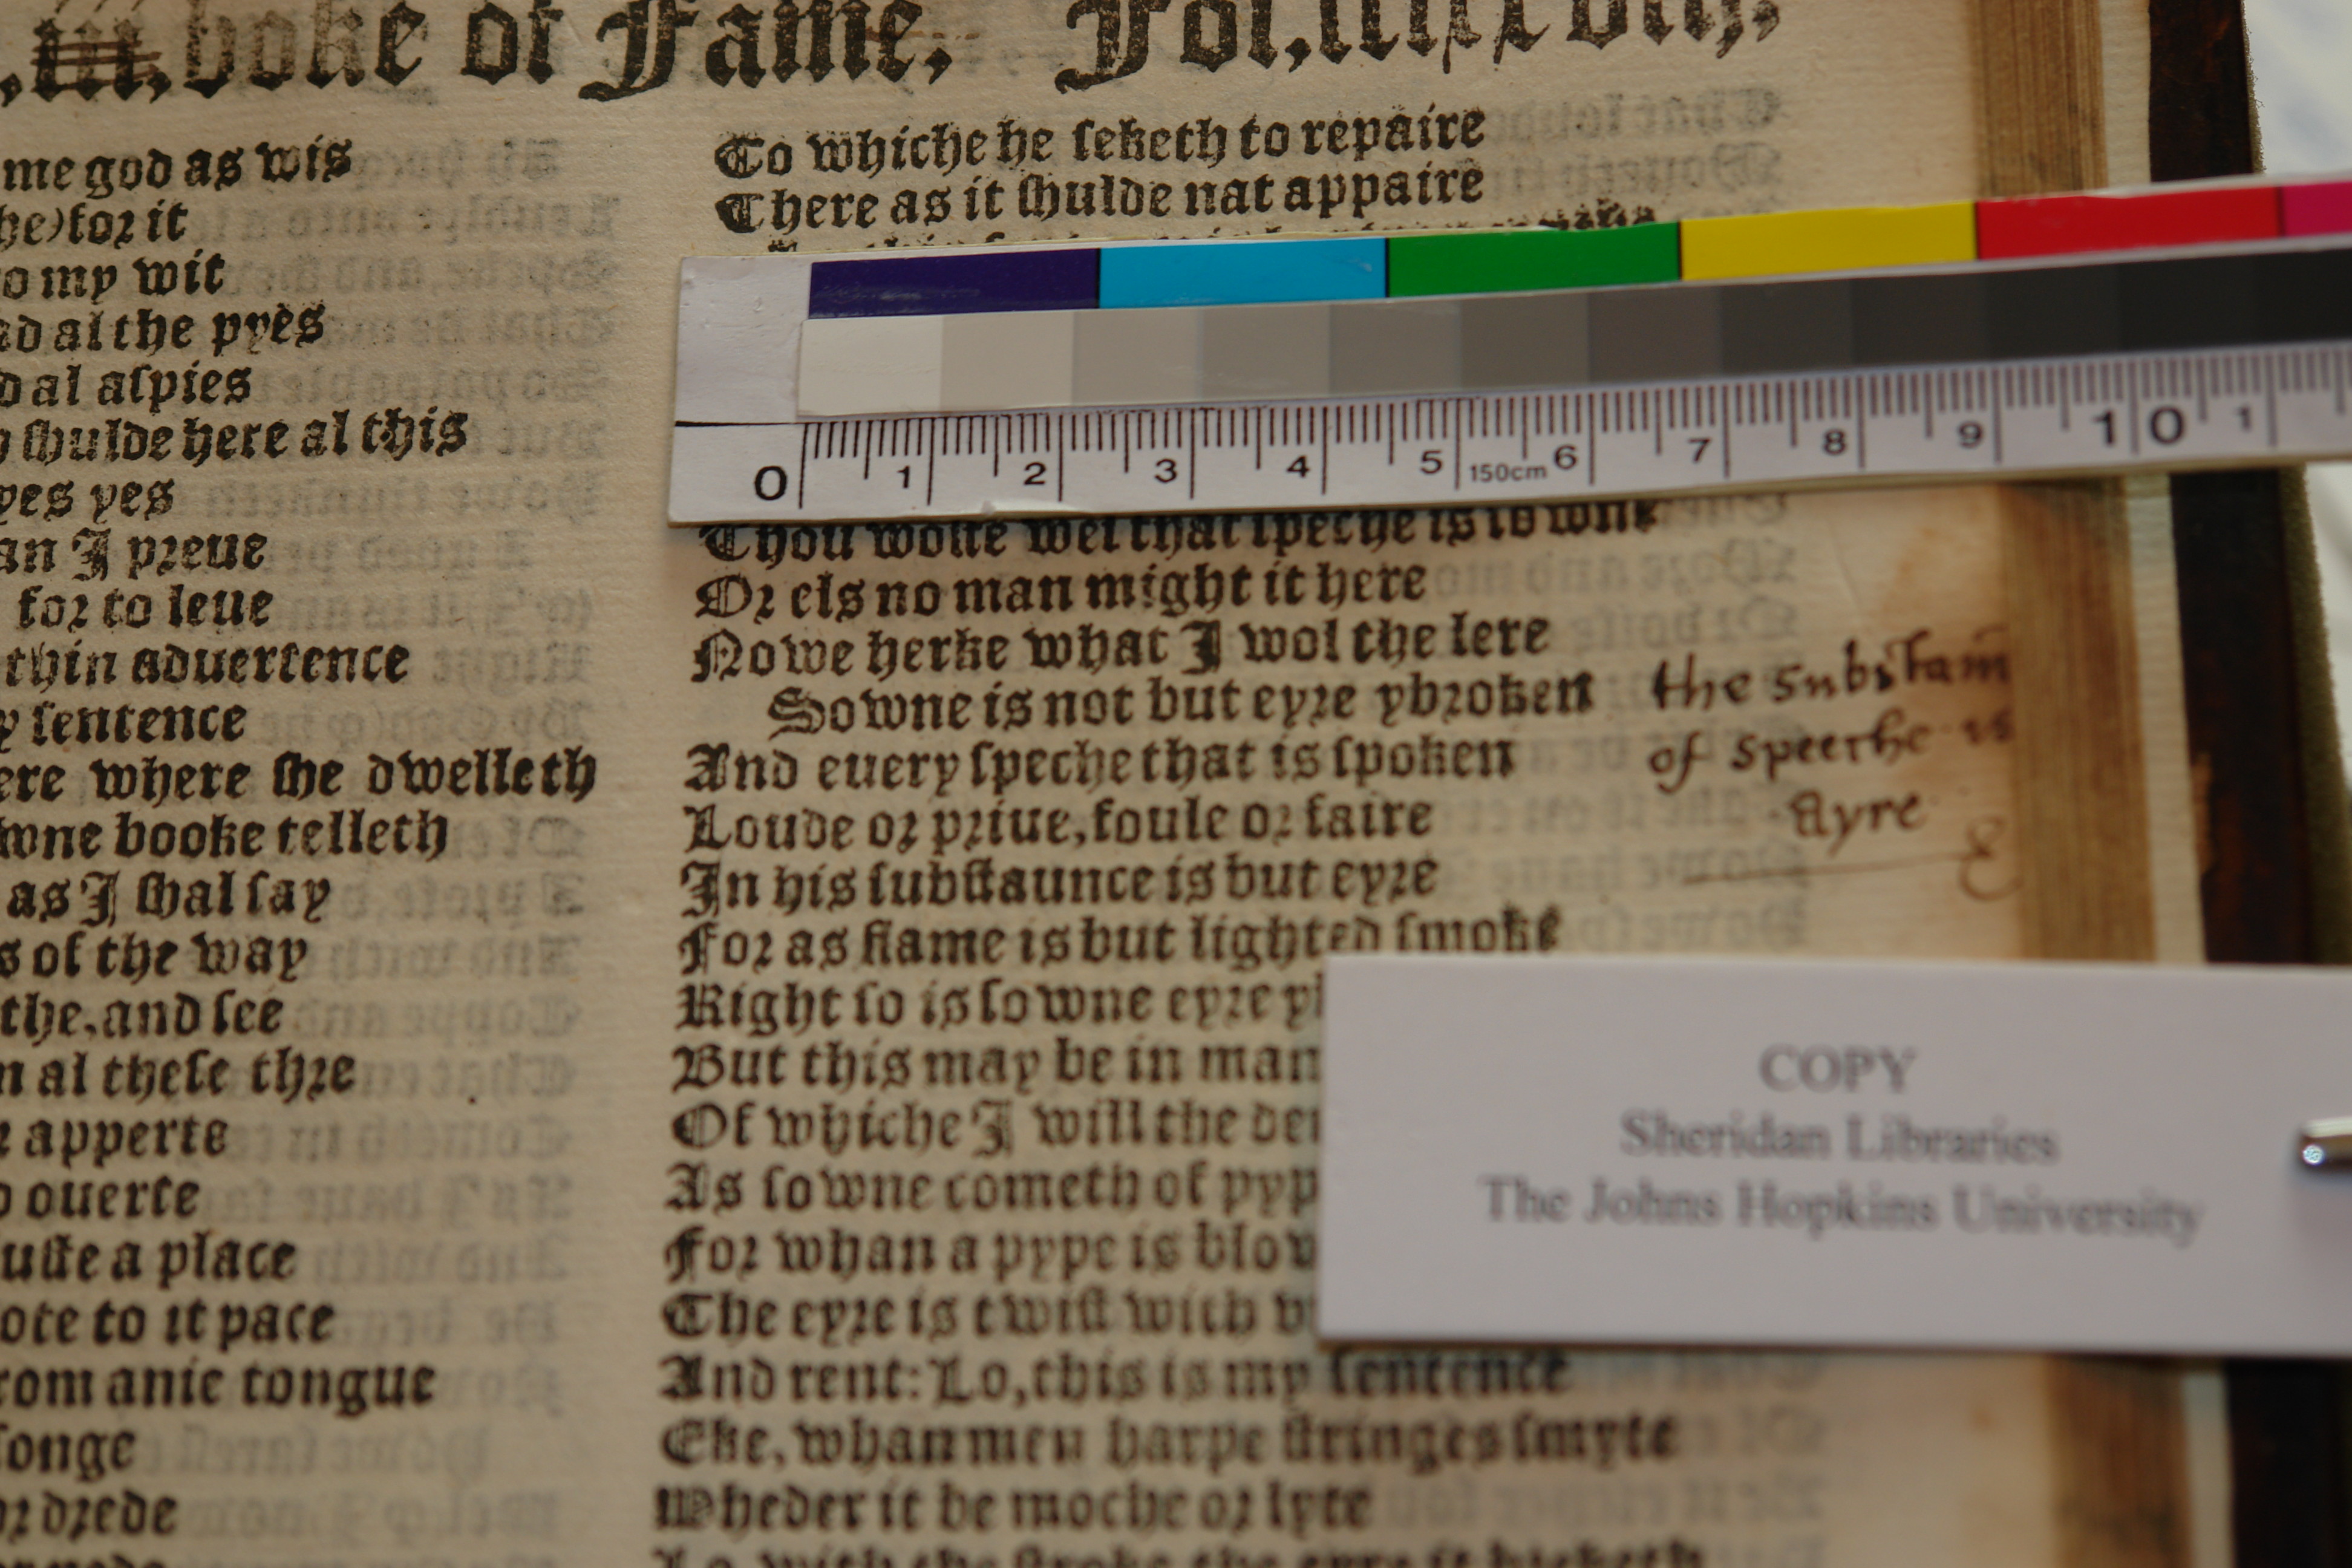 .iii. boke of Fame.
me god as wis
he) for it
o my wit
al the pyes
d al aspies
shulde here al this
yes yes
an I preue
for to leue
thin aduertence
sentence
ere where she dwelleth
wne booke telleth
as I shal say
s of the way
the, and see
n al these thre
apperte
ouerte
a place
ote to it pace
rom anie tongue
songe
or drede
To whiche he seketh to repaire
There as it shulde nat appaire
0 1 2 3 4 5 150cm 6 7 8 9 10 1
Thou woste wel that speche is sowne
Or els no man might it here
Nowe herke what I wol the lere
Sowne is not but eyre ybroken
And euery speche that is spoken
Loude or priue, foule or faire
In his substaunce is but eyre
For as flame is but lighted smoke
Right so is sowne eyre y
But this may be in man
Of whiche I will the
As sowne cometh of pyp
For whan a pype is blow
The eyre is twist with
And rent: Lo, this is my sentence
Eke, whan men harpe stringes smyte
Wheder it be moche or lyte
Lo, with the stroke the eyre it
the substam
of speeche is
Ayre
COPY
Sheridan Libraries
The Johns Hopkins University